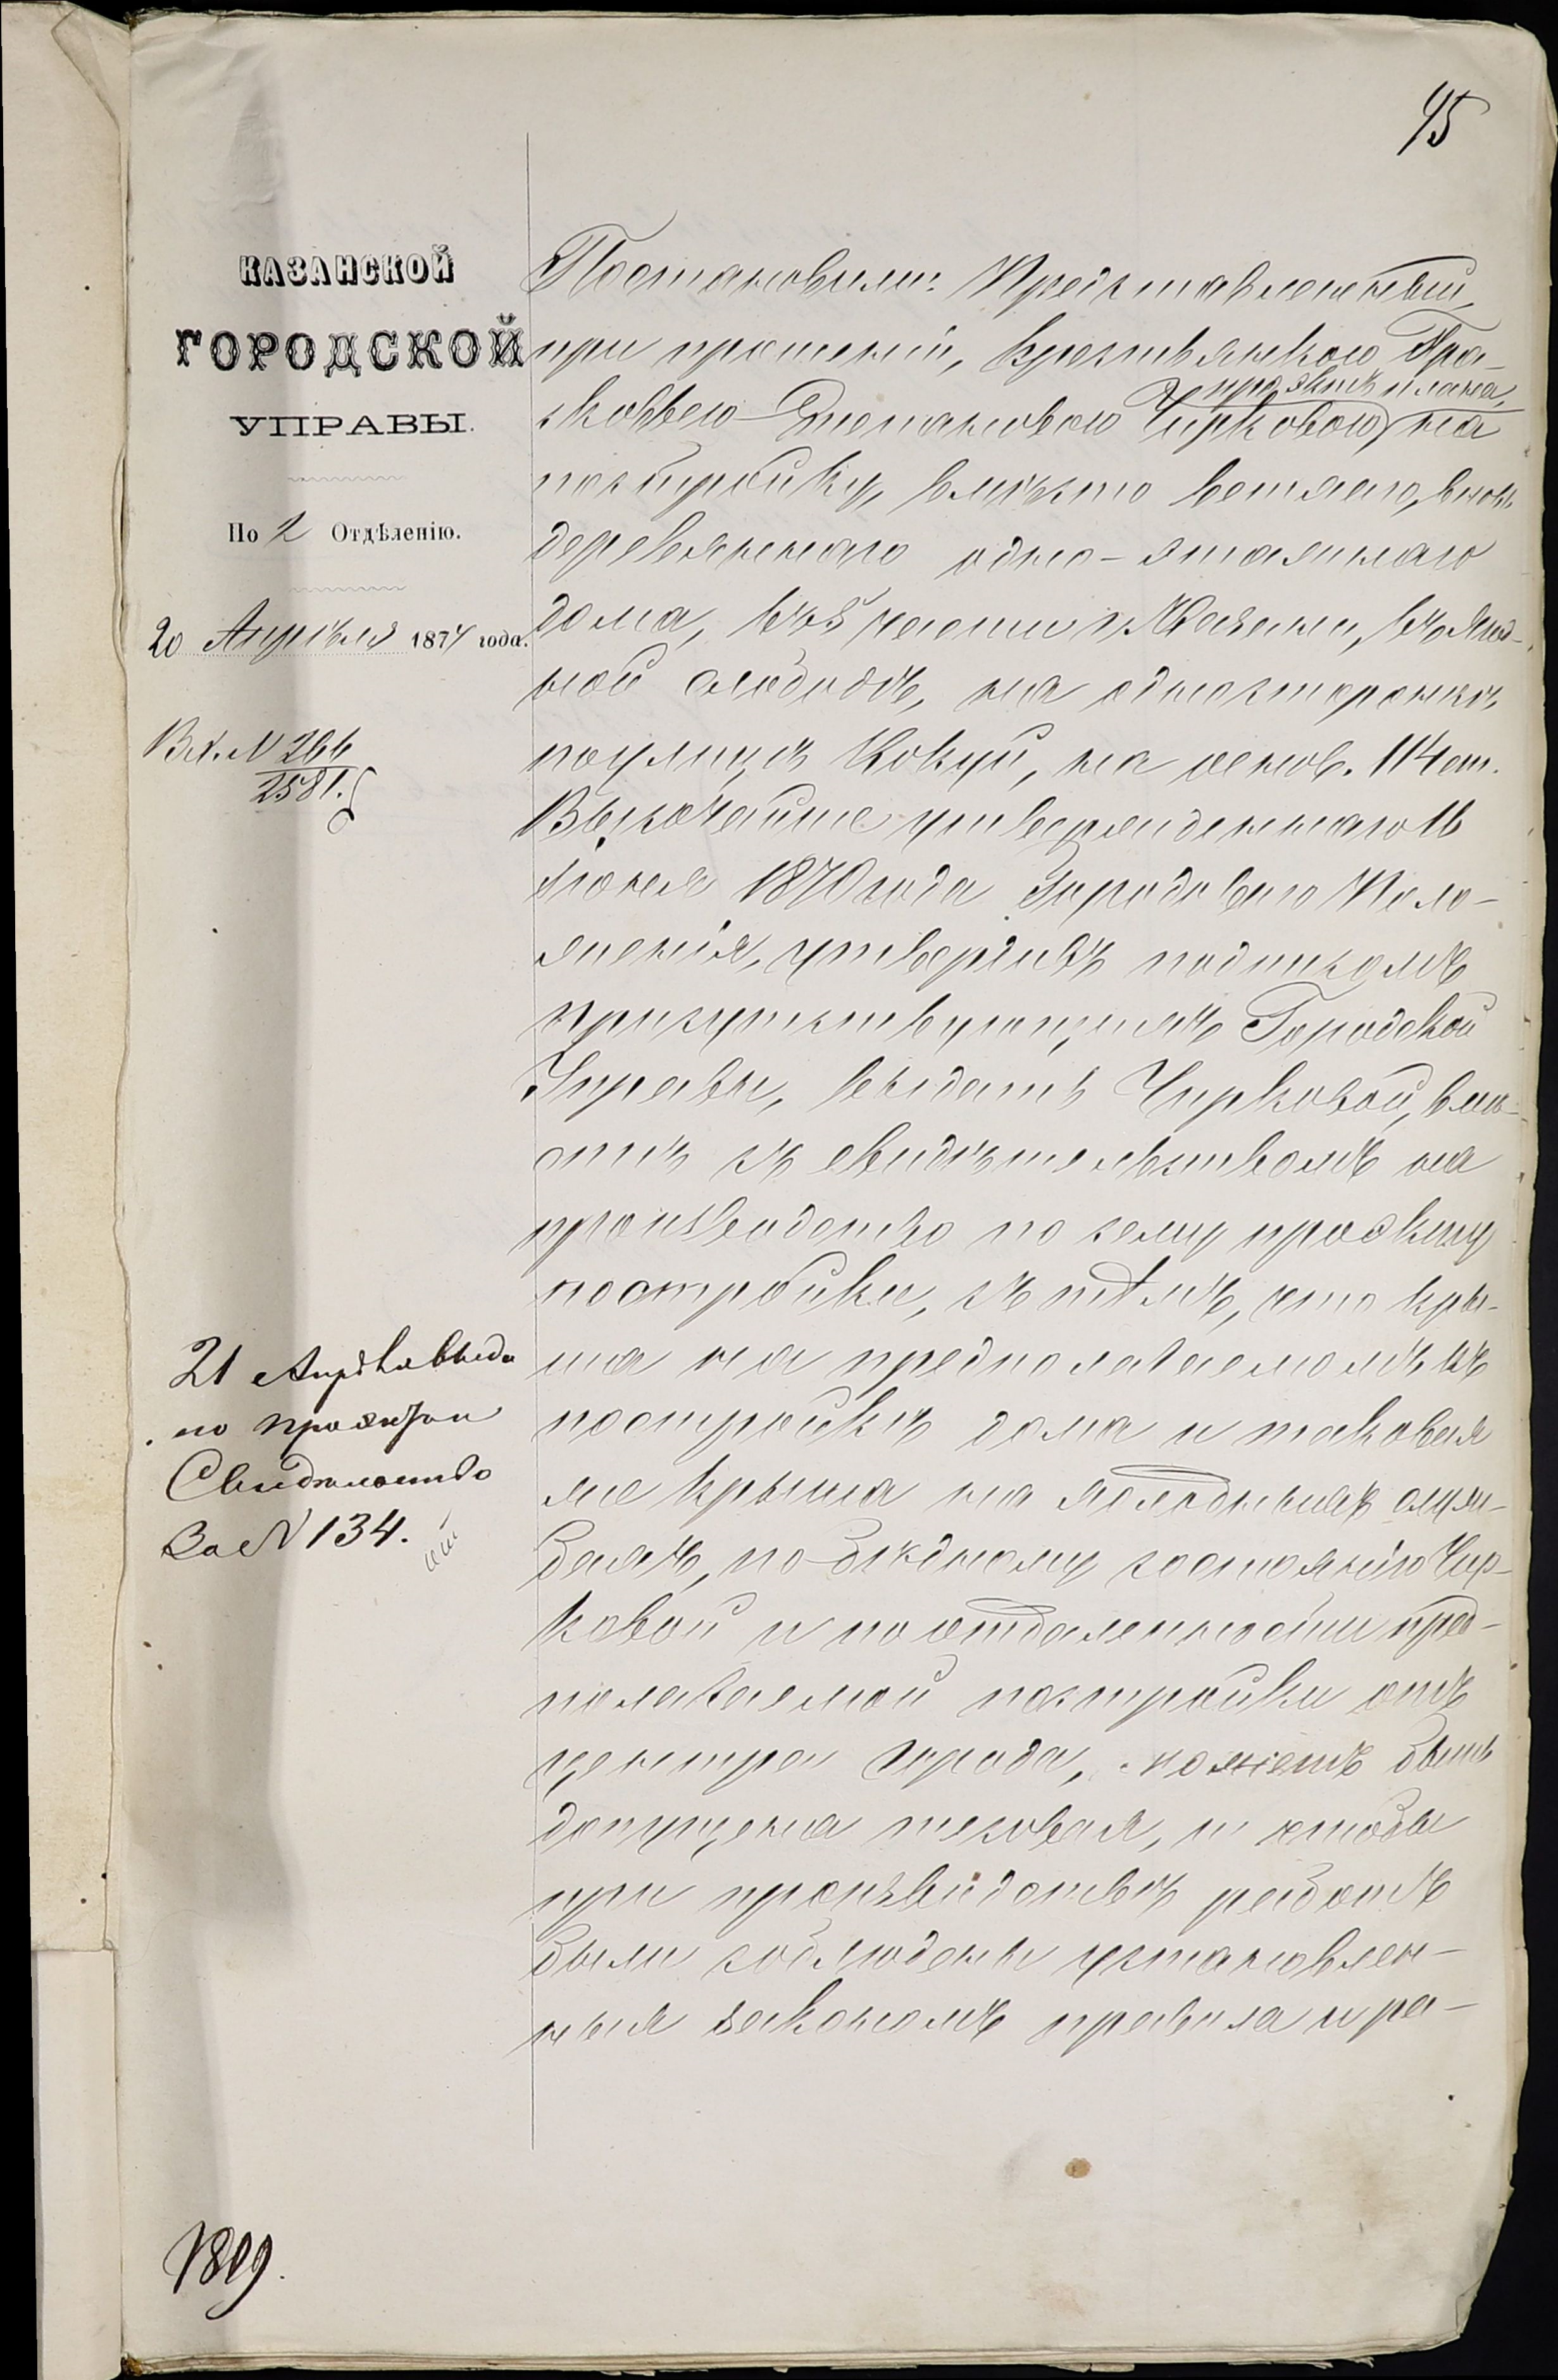 45
КАЗАНСКОЙ
ГОРОДСКОЙ
УПРАВЫ.
По 2 Отдѣленію.
20 Апрѣля 1874 года.
Вх. N 266
2581.
Постановили: Представленный
при прошеніи, крестьянкою Пра-
сковьею Степановою Чирковою, проэктъ плана, на
постройку, вмѣсто ветхаго, вновь
деревяннаго одно-этажнаго
дома, въ 5 части г. Казани, въ Ям-
ской слободѣ, на одностороннѣ,
по улицѣ Кокуй, на основ. 114 ст.
Высочайше утвержденнаго 16
Іюня 1870 года Городоваго Поло-
женія, утвердивъ подписомъ
присутствующихъ Городской
Управы, выдать Чирковой, вмѣ-
стѣ съ свидѣтельствомъ на
производство по сему проэкту
постройки, съ тѣмъ, что кры-
ша на предполагаемомъ къ
постройкѣ дома и таковая
же крыша на холодныхъ служ-
бахъ, по бѣдному состоянію Чир-
ковой и по отдаленности пред-
полагаемой постройки отъ
центра города, можетъ быть
допущена тесовая, и чтобы
при производствѣ работъ
были соблюдены установлен-
ныя закономъ правила и ра-
21 Апрѣля выда
но проэктъ и
Свидѣтельство
За N 134.
1819.